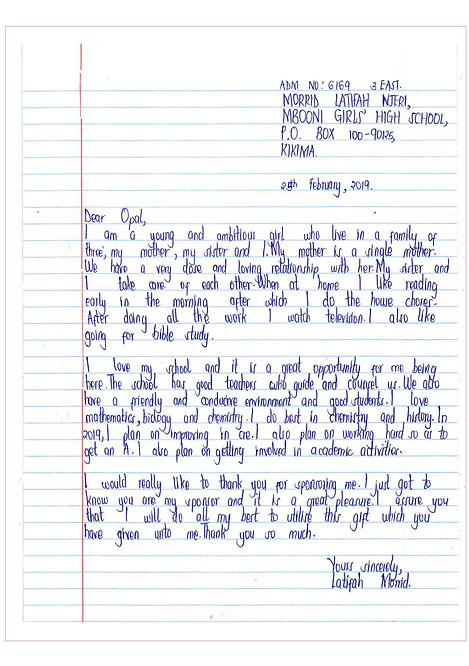 ADM NO: 6169 3 EAST.
MORRID LATIFAH NJERI,
MBOONI GIRLS' HIGH SCHOOL,
P.O. BOX 100-90125,
KIKIMA.
25th February, 2019.
Dear Opal,
I am a young and ambitious girl who live in a family of
three; my mother, my sister and I. My mother is a single mother.
We have a very close and loving relationship with her. My sister and
I take care of each other. When at home I like reading
early in the morning after which I do the house chores.
After doing all the work I watch television. I also like
going for bible study.
I love my school and it is a great opportunity for me being
here. The school has good teachers who guide and counsel us. We also
have a friendly and conducive environment and good students. I love
mathematics, biology and chemistry. I do best in chemistry and history. In
2019, I plan on improving in cre. I also plan on working hard so as to
get an A. I also plan on getting involved in academic activities.
I would really like to thank you for sponsoring me. I just got to
know you are my sponsor and it is a great pleasure. I assure you
that I will do all my best to utilise this gift which you
have given unto me. Thank you so much.
Yours sincerely,
Latifah Morrid.